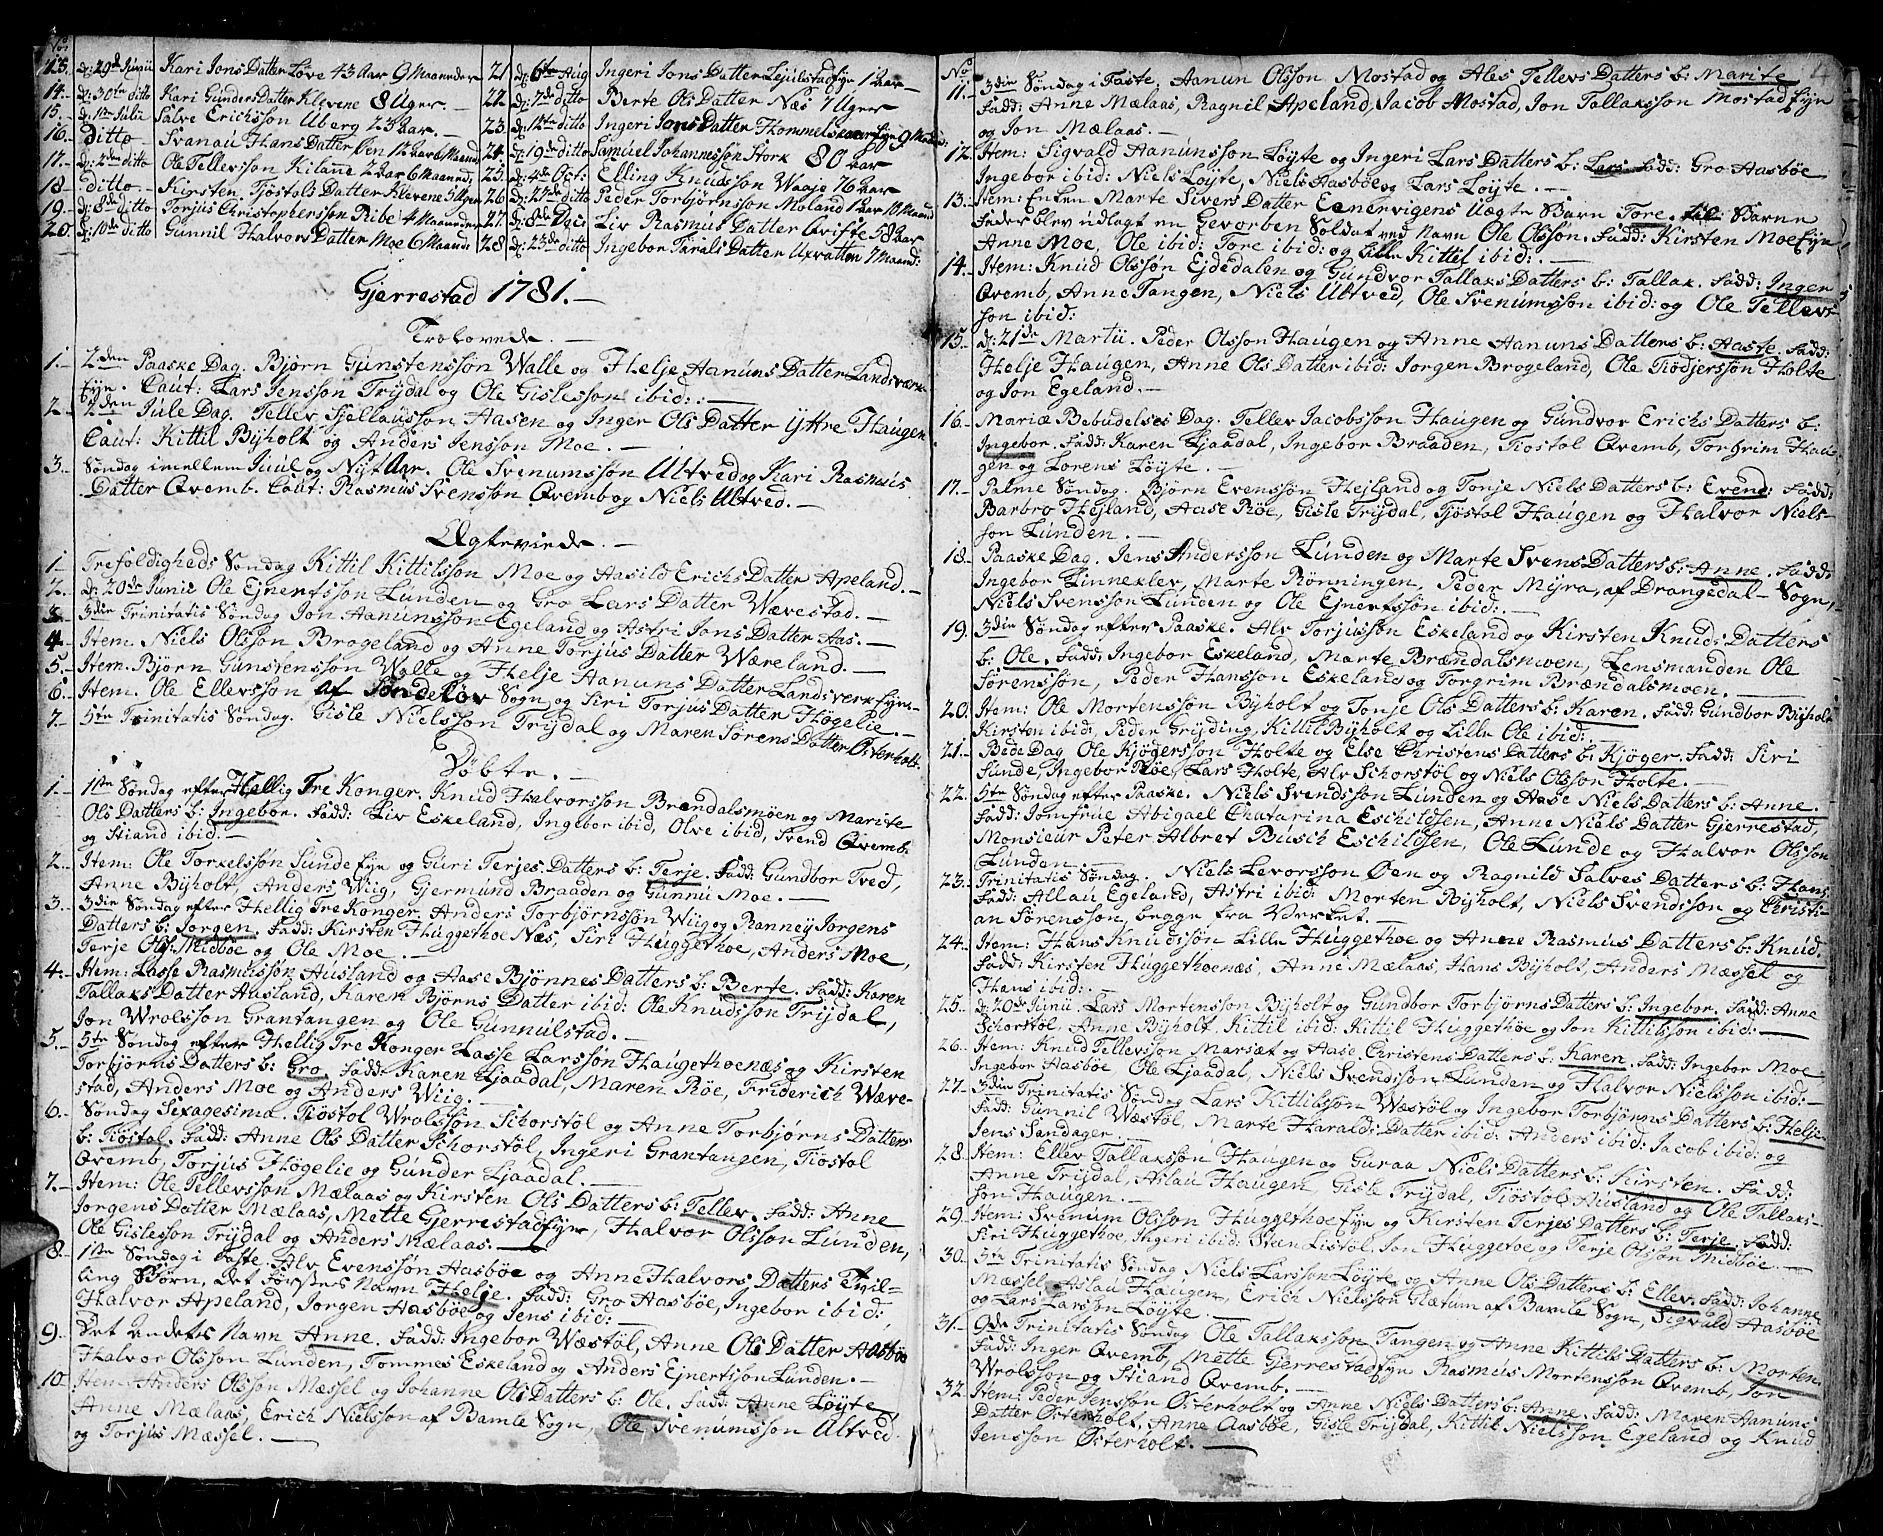 13. d: 29de Junii Kari Jons Datter Løve 43 Aar 9 Maaneder
14. d: 30te ditto Kari Gunders Datter Klevene 8 Uger. —
15. d: 1ste Julii Salve Erichsson Aberg 23 Aar. —
16. Ditto — Svanau Hans Datter Øen 12 Aar 6 Maaned:
17. d: 2den ditto Ole Tellevsson Kilane 2 Aar 6 Maaned:
18. ditto — Kirsten Tjøstols Datter Klevene 5 Uger
19. d: 8de ditto Torjus Christophersson Ribe 4 Maaneder
20. d: 10de ditto Gunnil Halvors Datter Moe 6 Maaned:
21. d: 6te Aug Ingeri Jons Datter Lejulstad eyn 1 Aar —
22. d: 7de ditto Berte Ols Datter Næs 7 Uger
23. d: 12te ditto Ingeri Jons Datter Hommelsmoen eyn 9 Maaned:
24. d: 19de ditto Samuel Johannesson Stork 80 Aar
25. d: 4de Oct: Elling Knudsson Waaje 76 Aar
26. d: 22de ditto Peder Torbjørnsson Moland 1 Aar 10 Maaned
27. d: 8de Dec: Liv Rasmus Datter Qviste 58 Aar
28. d: 23de ditto Ingebor Tarals Datter Uxvatten 7 Maaned:
Gjerrestad 1781. —
Trolovede. —
1. — 2den Paaske Dag. Bjørn Gunstensson Walle og Helje Aanuns Datter Landsverk-
eyn. Caut: Lars Jensson Trydal og Ole Gislesson ibid: —
2. — 2den Jule Dag. Tellev Sjellausson Aasen og Inger Ols Datter Yttre Haugen
Caut: Kittil Byholt og Anders Jensson Moe. —
3. — Søndag imellem Juul og Nyt Aar. Ole Svenumsson Ultved og Kari Rasmus
Datter Qvemb. Caut: Rasmus Svensson Qvemb og Niels Ultved. —
Ægteviede. —
1. Trefoldigheds Søndag Kittil Kittilsson Moe og Aasild Erichs Datter Apeland. —
2. d: 20de Junii Ole Ejnertsson Lunden og Gro Lars Datter Wævestad. —
3. 3die Trinitatis Søndag Jon Aanunsson Egeland og Astri Jons Datter Aas. —
4. Item. Niels Olsson Brogeland og Anne Torjus Datter Wæreland. —
5. Item. Bjørn Gunstensson Walle og Helje Aanuns Datter Landsverk eyn. —
6. Item. Ole Ellevsson af Søndeløv Sogn og Siri Torjus Datter Høgelie. —
7. — 5te Trinitatis Søndag. Gisle Nielsson Trydal og Maren Sørens Datter Østerholt.
Døbte. —
1. — 1ste Søndag efter Hellig Tre Konger. Knud Halvorsson Brendalsmoen og Marite
Ols Datters b: Ingebor. Fadd: Liv Eskeland, Ingebor ibid, Olve ibid, Svend Qvemb.
og Stiand ibid: —
2. — Item: Ole Torkelsson Sunde eyn og Guri Terjes Datters b: Terje. Fadd: Gundbor Tved,
Anne Byholt, Anders Wiig, Gjermund Braaden og Gunnu Moe. —
3. — 3die Søndag efter Hellig Tre Konger, Anders Torbjørnsson Wiig og Ranney Jorgens
Datters b: Jorgen. Fadd: Kirsten Huggethoe Næs, Siri Huggethoe, Anders Moe,
Terje Ols: Midbøe og Ole Moe. —
4. — Item: Lasse Rasmusson Ausland og Aase Bjønnes Datters b: Berte. Fadd: Karen
Tallaks Datter Ausland, Karen Bjørns Datter ibid: Ole Knudsson Trydal,
Jon Wrolsson Grantangen og Ole Gunnulstad. —
5. — 5te Søndag efter Hellig Tre Konger Lasse Larsson Haugethoenæs og Kirsten
Torbjørns Datters b: Gro. Fadd: Karen Ljaadal, Maren Røe, Friderich Wæve-
stad, Anders Moe og Anders Wiig. —
6. — Søndag Sexagesima. Tiøstol Wrolsson Schorstøl og Anne Torbjørns Datters
b: Tiøstol. Fadd: Anne Ols Datter Schorstøl, Ingeri Grantangen, Tiøstol
Qvemb, Torjus Høgelie og Gunder Ljaadal. —
7. — Item: Ole Tellevsson Mælaas og Kirsten Ols Datters b: Tellev. Fadd: Anne
Jorgens Datter Mælaas, Mette Gjerrestad eyn, Halvor Olsson Lunden,
Ole Gislesson Trydal og Anders Mælaas. —
8. — 1ste Søndag i Faste, Alv Evensson Aasbøe og Anne Halvors Datters Tvil-
ling Børn, Det Førstes Navn Helje. Fadd: Gro Aasbøe, Ingebor ibid:,
Halvor Apeland, Jorgen Aasbøe og Jens ibid: —
9. — Det Andets Navn Anne. Fadd: Ingebor Wæstøl, Anne Ols Datter Aasbøe
Halvor Olsson Lunden, Tommes Eskeland og Anders Ejnertsson Lunden. —
10. Item: Anders Olsson Mæssel og Johanne Ols Datters b: Ole. Fadd: Anne Løyte
Anne Mælaas, Erich Nielsson af Bamle Sogn, Ole Svenumsson Ultved.
og Torjus Mæssel. —
No
11. — 3die Søndag i Faste, Aanun Olsson Mostad og Ales Tellevs Datters b: Marite
Fadd: Anne Mælaas, Ragnil Apeland, Jacob Mostad, Jon Tallaksson Mostad eyn
og Jon Mælaas. —
12. Item: Sigvald Aanunsson Løyte og Ingeri Lars Datters b: Lars. Fadd: Gro Aasbøe
Ingebor ibid: Niels Løyte, Niels Aasbøe og Lars Løyte. —
13. — Item: Enken Marte Sivers Datter Eenervigens Uægte Barn Tore. til Barne
Fader blev udlagt en Gevorben Soldat ved Navn Ole Olsson. Fadd: Kirsten Moe eyn
Anne Moe, Ole ibid: Tore ibid: og Lille Kittil ibid: —
14. — Item: Knud Olsson Ejdedalen og Gundvor Tallaks Datters b: Tallak. Fadd: Inger
Qvemb, Anne Tangen, Niels Ultved, Ole Svenumsson ibid: og Ole Tellevs-
son ibid:
15. — d: 21de Martii. Peder Olsson Haugen og Anne Aanuns Datters b: Aaste. Fadd:
Helje Haugen, Anne Ols Datter ibid: Jorgen Brogeland, Ole Tiødjersson Holte
og Jon Egeland. —
16. — Mariæ Bebudelses Dag. Tellev Jacobsson Haugen og Gundvor Erichs Datters b:
Ingebor. Fadd: Karen Ljaadal, Ingebor Braaden, Tiøstol Qvemb, Torgrim Hau-
gen og Lorens Løyte. —
17. — Palme Søndag. Bjørn Evensson Hejland og Tonje Niels Datters b: Evend: Fadd:
Barbro Hejland, Aase Røe, Gisle Trydal, Tjøstol Haugen og Halvor Niels-
son Lunden. —
18. — Paaske Dag. Jens Andersson Lunden og Marte Svens Datters b: Anne. Fadd:
Ingebor Linneklev, Marte Rønningen, Peder Myra, af Drangedal Sogn,
Niels Svensson Lunden og Ole Ejnertsson ibid: —
19. 3die Søndag efter Paaske. Alv Torjusson Eskeland og Kirsten Knud: Datters
b: Ole. Fadd: Ingebor Eskeland, Marte Brændalsmoen, Lensmanden Ole
Sørensson, Peder Hansson Eskeland og Torgrim Brændalsmoen. —
20. Item: Ole Mortensson Byholt og Tonje Ols Datters b: Karen. Fadd: Gundbor Byholt
Kirsten ibid; Peder Gryding, Kittil Byholt og Lille Ole ibid: —
21. — Bede Dag Ole Kjøgersson Holte og Else Christens Datters b: Kjøger. Fadd: Siri
Sunde, Ingebor Røe, Lars Holte, Alv Schorstøl og Niels Olsson Holte —
22. 5te Søndag efter Paaske. Niels Svendsson Lunden og Aase Niels Datters b: Anne.
Fadd: Jomfrue Abigael Chatarina Eschildsen, Anne Niels Datter Gjerrestad,
Monsieur Peter Albret Busch Eschildsen, Ole Lunde og Halvor Olsson
Lunden. —
23. — Trinitatis Søndag. Niels Levorsson Øen og Ragnild Salves Datters b: Hans
Fadd: Allau Egeland, Astri ibid: Morten Byholt, Niels Svendsson og Christi-
an Sørensson, begge fra Verket. —
24. — Item: Hans Knudsson Lille Huggethoe og Anne Rasmus Datters b: Knud.
Fadd: Kirsten Huggethoenæs, Anne Mælaas, Hans Byholt, Anders Mæssel og
Hans ibid: —
25. — d: 20de Junii. Lars Mortensson Byholt og Gundbor Torbjørns Datters b: Ingebor. Fadd: Anne
Schorstøl, Anne Byholt, Kittil ibid: Kittil Huggethoe og Jon Kittilsson ibid: —
26. — Item: Knud Tellevsson Marsæt og Aase Christens Datters b: Karen. Fadd: Ingebor Moe
Ingebor Aasbøe Ole Ljaadal, Niels Svendsson Lunden og Halvor Nielsson ibid: —
27. — 3die Trinitatis Søndag Lars Kittilsson Wæstøl og Ingebor Torbjørns Datters b: Helje
Fadd: Gunnil Wæstøl, Marte Harald: Datter ibid: Anders ibid: Jacob ibid: og
Jens Sandager —
28. — Item: Ellev Tallaksson Haugen og Guraa Niels Datters b: Kirsten. Fadd:
Anne Trydal, Aslau Haugen, Gisle Trydal, Tiøstol Ausland og Ole Tallaks-
son Haugen. —
29. Item: Svenum Olsson Huggethoe eyn og Kirsten Terjes Datters b: Terje. Fadd:
Siri Huggethoe, Ingeri ibid: Steen Listøl, Jon Huggetoe og Terje Olsson Midbøe. —
30. — 5te Trinitatis Søndag Niels Larsson Løyte og Anne Ols Datters b: Ellev. Fadd: Johanne
Mæssel, Aslau Haugen, Erich Nielsson Glætum af Bamle Sogn, Sigvald Aasbøe
og Lars Larsson Løyte. —
31. — 9de Trinitatis Søndag Ole Tallaksson Tangen og Anne Kittils Datters b: Morten.
Fadd: Inger Qvemb, Mette Gjerrestad eyn Rasmus Mortensson Qvemb, Jon
Wrolsson og Stiand Qvemb. —
32. Item: Peder Jensson Østerholt og Anne Niels Datters b: Anne. Fadd: Maren Aanuns
Datter Østerholt, Anne Aasbøe, Gisle Trydal, Kittil Nielsson Egeland og Knud
Jensson Østerholt. —